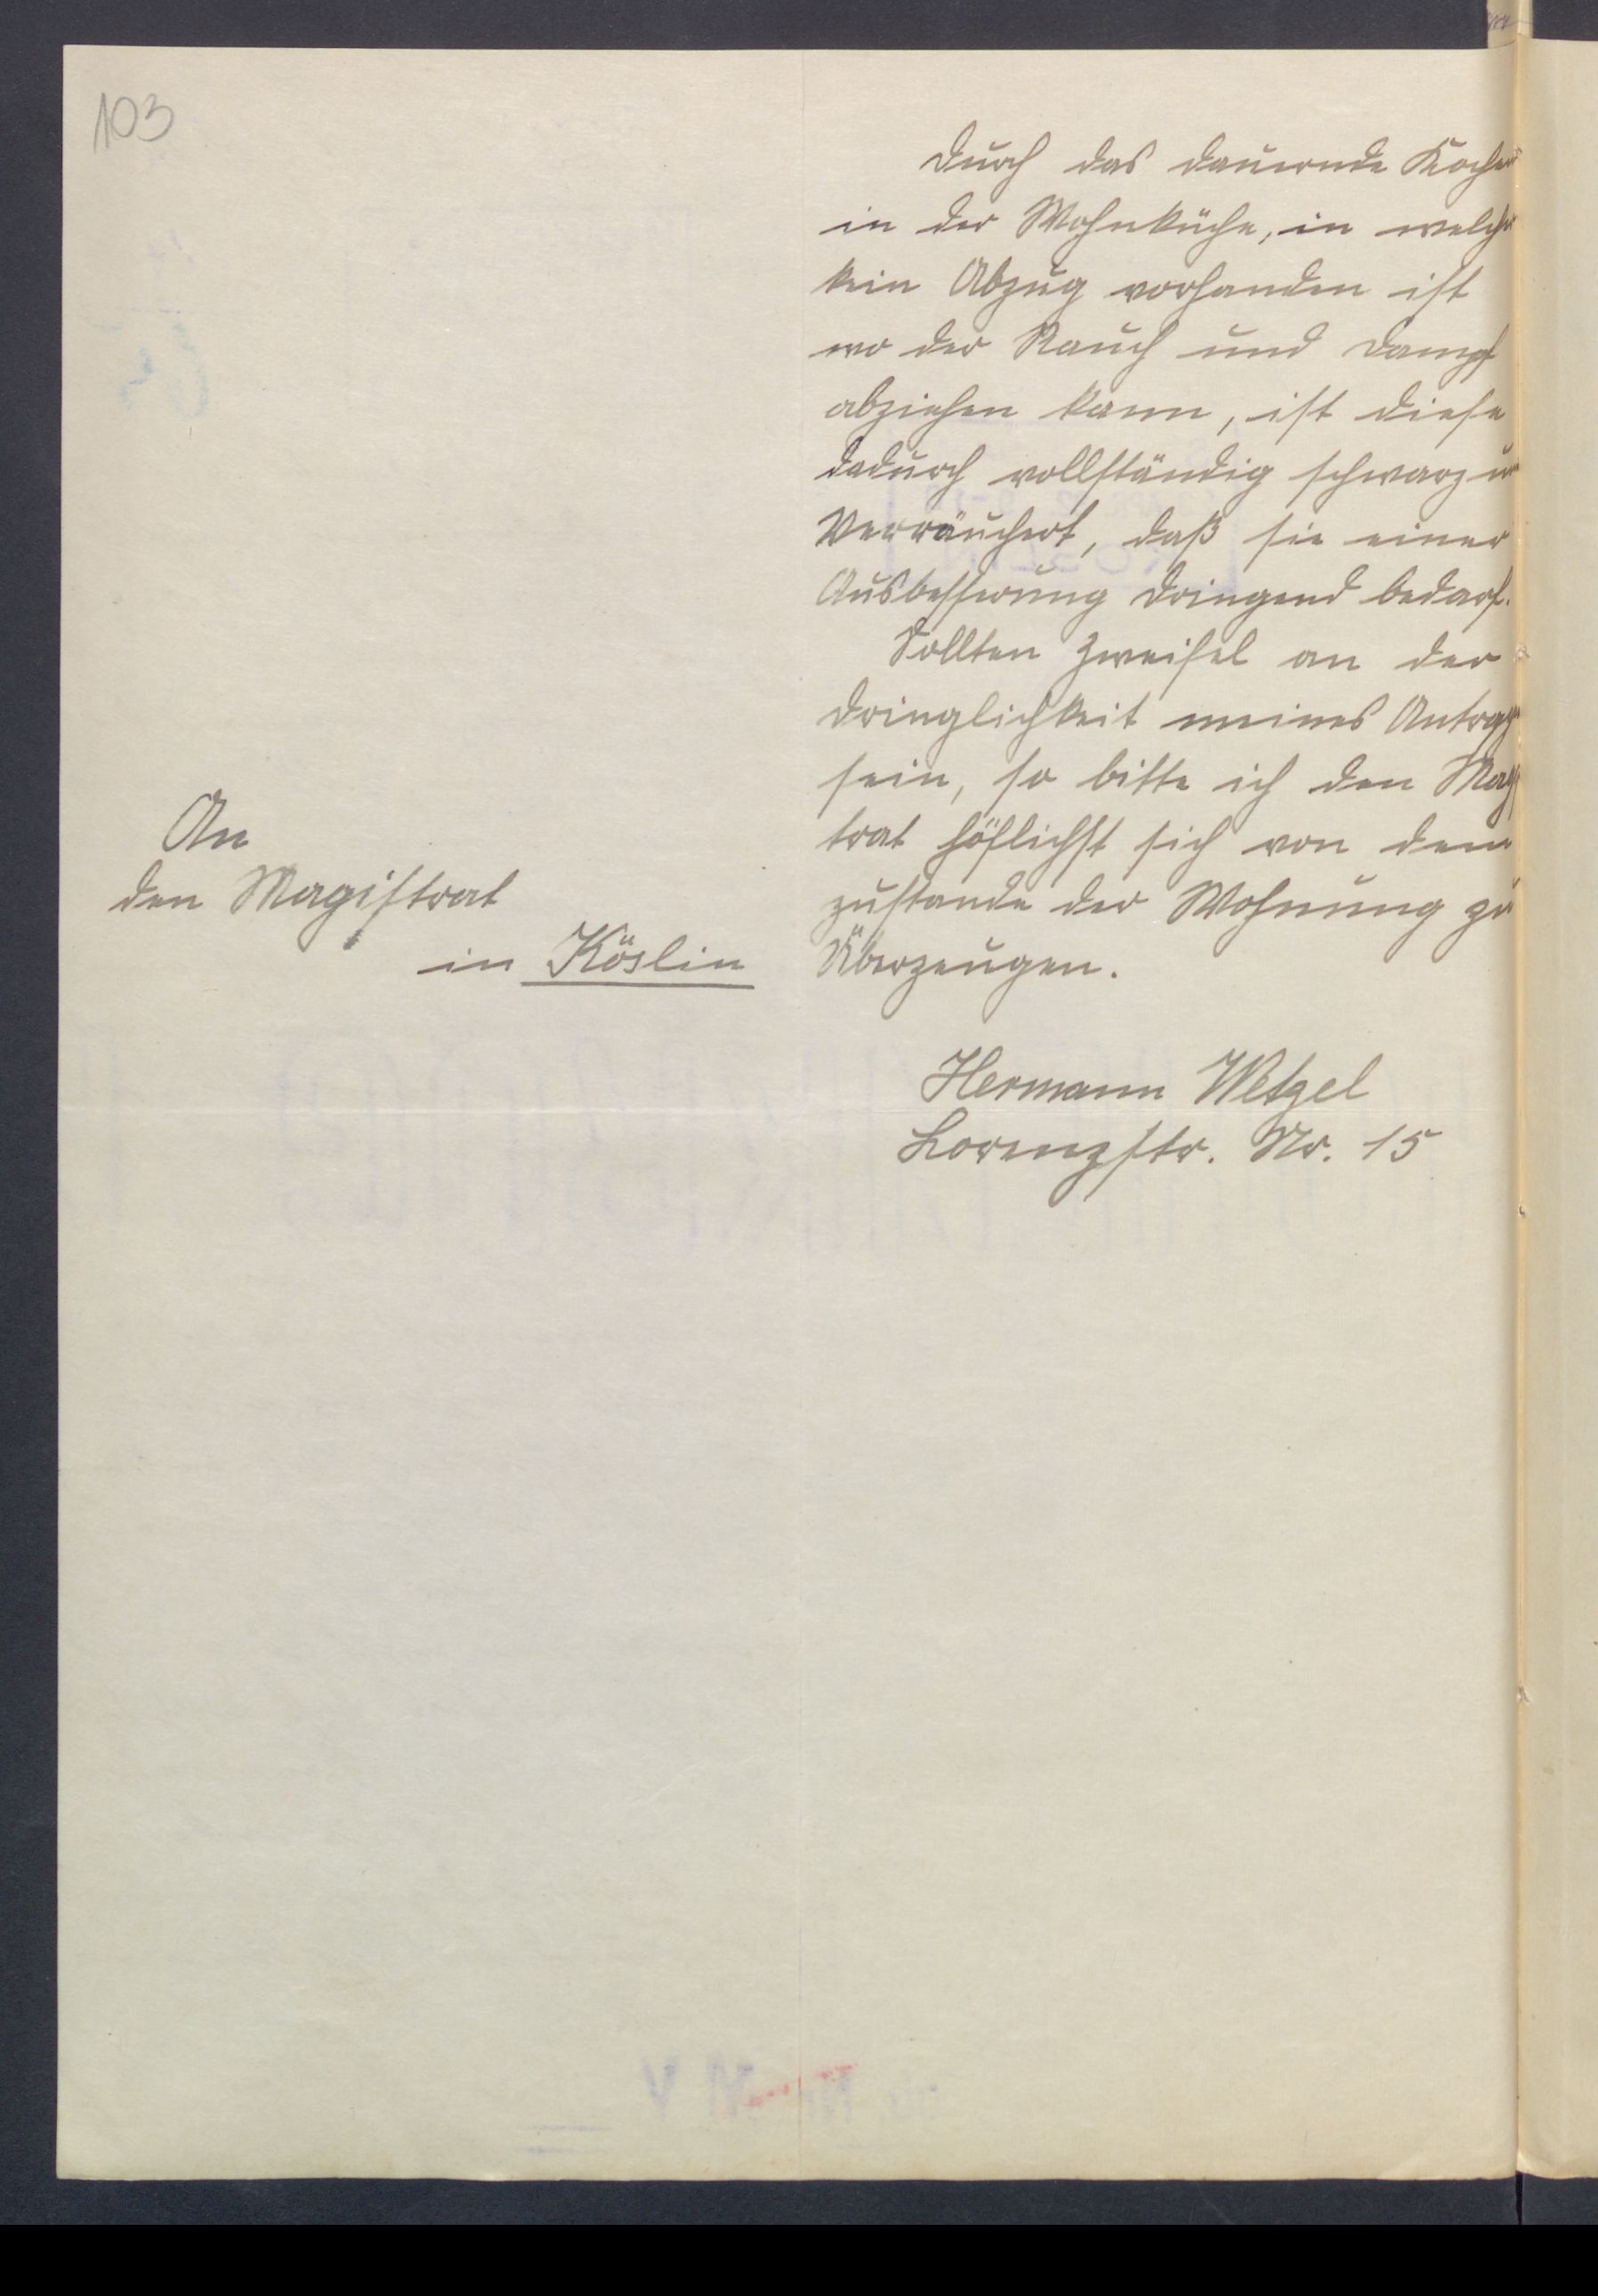 103
Durch das dauernde Kochen
in der Wohnküche, in welcher
kein Abzug vorhanden ist
wo der Rauch und Dampf
abziehen kann, ist diese
dadurch vollständig schwarz u
Verräuchert, daß sie einer
Ausbesserung dringend bedarf.
Sollten Zweifel an der
Dringlichkeit meines Antrags
sein, so bitte ich den Magis
trat höflichst sich von dem
zustande der Wohnung zu
Überzeugen.
An
den Magistrat
in Köslin
Hermann Wetzel
Lorenzstr. Nr. 15